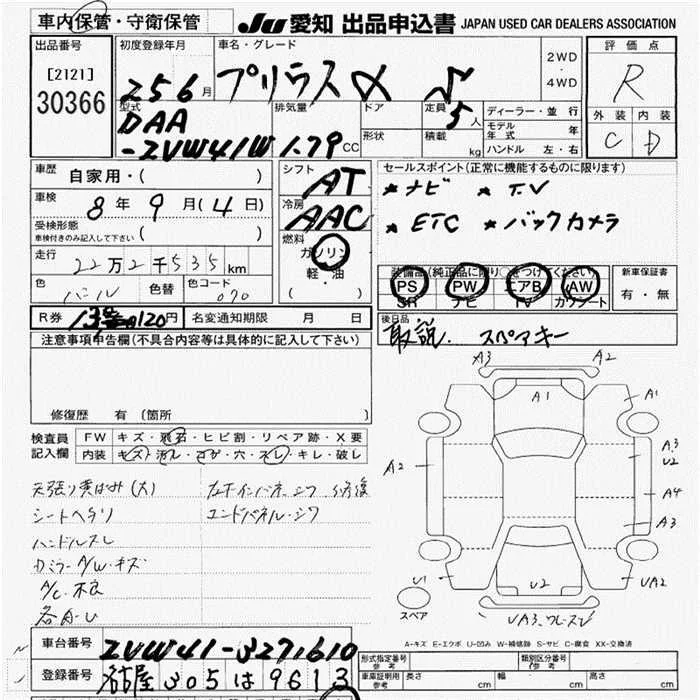 車内保管・守衛保管
JU 愛知 出品申込書 JAPAN USED CAR DEALERS ASSOCIATION
出品番号
[2121]
30366
初度登録年月
25 6月
車名・グレード
プリウスα S
2WD
・
4WD
評価点
R
外装 内装
C D
型式
DAA
-ZVW41W
排気量
1.79 CC
ドア
形状
定員
5人
積載
kg
ディーラー・並行
モデル年式 年
ハンドル 左・右
車歴
自家用・( )
車検
8年 9月(4日)
受検形態
車検付きのみ記入して下さい ( )
走行
22万2千535km
色
パール
色替
色コード
070
シフト
AT
冷房
AAC
燃料
ガソリン
軽・油
( )
セールスポイント(正常に機能するものに限ります)
★ナビ ★T.V
★ETC ★バックカメラ
装備品(純正品に限り○をつけてください)
PS PW エアB AW
SR ナビ TV カワシート
新車保証書
有・無
R券 円
名変通知期限 月 日
後日品
取説. スペアキー
注意事項申告欄(不具合内容等は具体的に記入して下さい)
修復歴 有 〔箇所 〕
検査員
記入欄
FW キズ・飛石・ヒビ割・リペア跡・X要
内装 キズ・汚レ・コゲ・穴・スレ・キレ・破レ
シートヘタリ
ハンドルスレ
エンドパネル・シワ
A/C不良
A3 A2
A1 A1
A2
A3
U2
A4
A3
U1 U2 UA2
スペア
A-キズ E-エクボ U-凹み W-補修跡 S-サビ C-腐食 XX-交換済
車台番号
ZVW41-3271610
登録番号
名古屋 305 は 9613
形式指定番号
参考
類別区分番号
参考
車庫証明用
参考
長さ cm
幅 cm
高さ cm